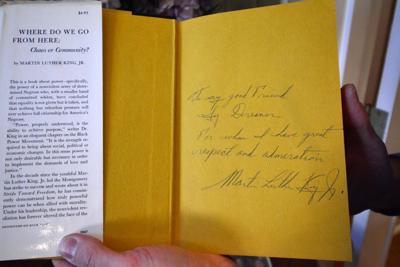 $4.95
WHERE DO WE GO
FROM HERE:
Chaos or Community?
by MARTIN LUTHER KING, JR.
This is a book about power—specifically,
the power of a nonviolent army of deter-
mined Negroes who, with a smaller band
of committed whites, have concluded
that equality is not given but is taken, and
that nothing but relentless pressure will
ever achieve full citizenship for America's
Negroes.
"Power, properly understood, is the
ability to achieve purpose," writes Dr.
King in an eloquent chapter on the Black
Power Movement. "It is the strength re-
quired to bring about social, political or
economic changes. In this sense power is
not only desirable but necessary in order
to implement the demands of love and
justice."
In the decade since the youthful Mar-
tin Luther King, Jr. led the Montgomery
bus strike to success and wrote about it in
Stride Toward Freedom, he has consis-
tently demonstrated how truly powerful
power can be when allied with morality.
Under his leadership, the nonviolent revo-
lution has forever altered the face of the
To my good Friend
Sy Dresner
For whom I have great
respect and admiration
Martin Luther King Jr.